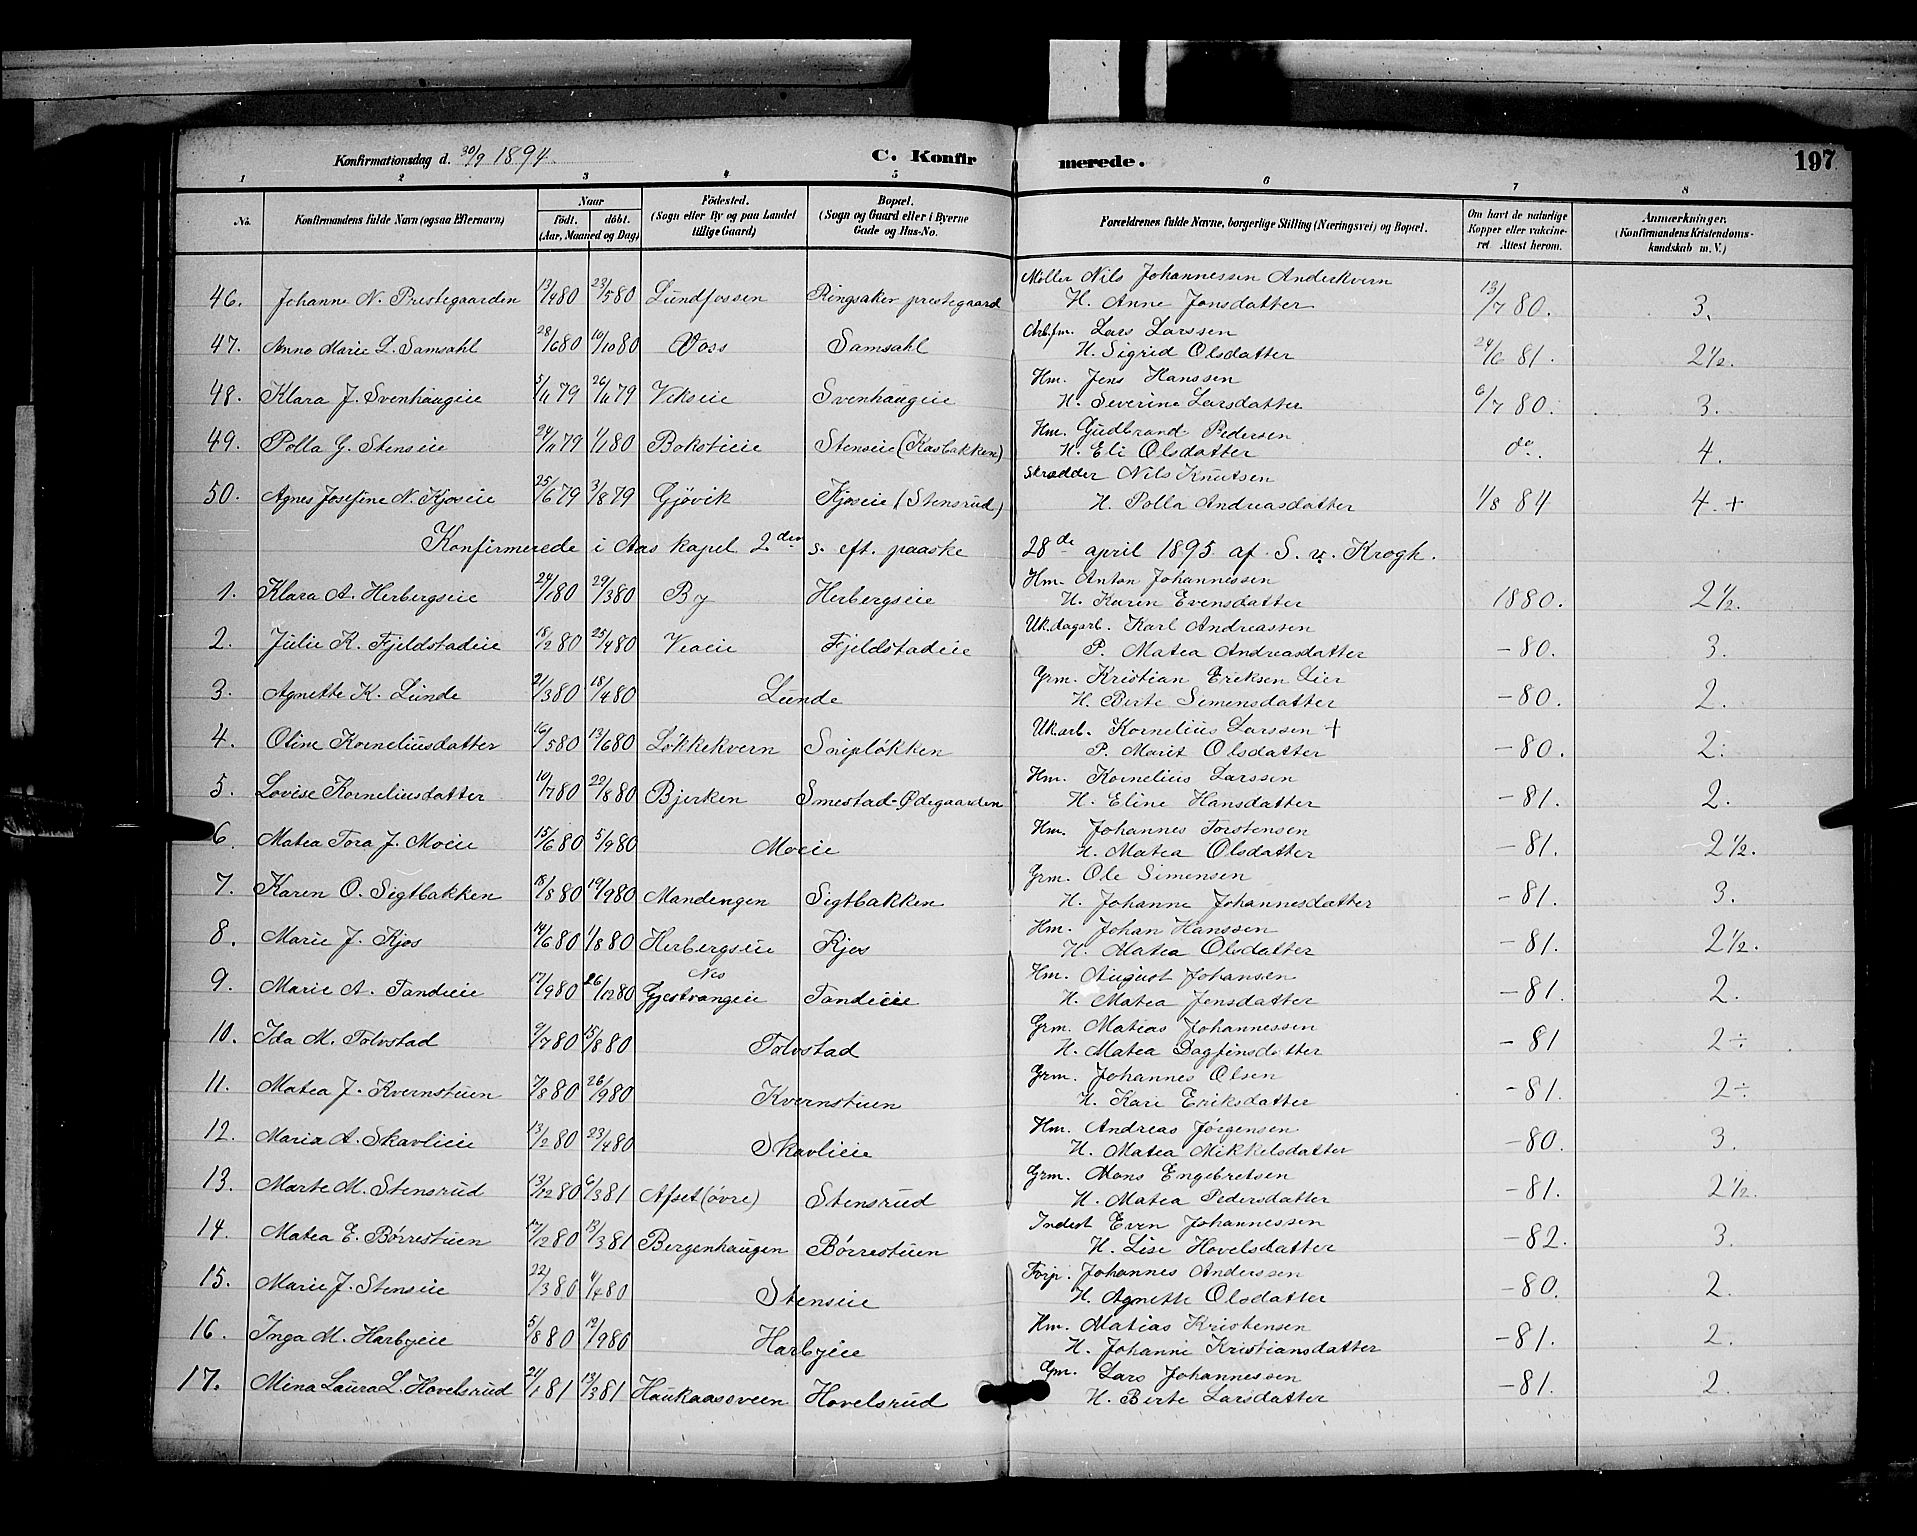 Konfirmationsdag d. 30/9 1894. C. Konfirmerede. 197
1 2 3 4 5 6 7 8
No. Konfirmandens fulde Navn (ogsaa Efternavn) Naar født. døbt. (Aar, Maaned og Dag) Fødested. (Sogn eller By og paa Landet tillige Gaard) Bopæl. (Sogn og Gaard eller i Byerne Gade og Hus-No. Forældrenes fulde Navne, borgerlige Stilling (Næringsvei) og Bopæl. Om havt de naturlige Kopper eller vakcineret. Attest herom. Anmærkninger. (Konfirmandens Kristendomskundskab m. V.)
46. Johanne N. Prestegaarden 13/4 80 23/5 80 Lundfossen Ringsaker prestegaard Møller Nils Johannessen Anderkvern
H. Anne Jonsdatter 13/7 80. 3.
47. Anne Marie L. Samsahl 28/6 80 10/10 80 Voss Samsahl Arb.fm. Lars Larssen
H. Sigrid Olsdatter 24/6 81. 2½.
48. Klara J. Svenhaugeie 5/11 79 26/11 79 Vikseie Svenhaugeie Hm. Jens Hanssen
H. Severine Larsdatter 6/7 80. 3.
49. Polla G. Stenseie 24/11 79 1/1 80 Bokstieie Stenseie (Kasbakken) Hm. Gudbrand Pedersen
H. Eli Olsdatter do. 4.
50. Agnes Josefine N. Kjoseie 25/6 79 3/8 79 Gjøvik Kjoseie (Stensrud) Skrædder Nils Knutsen
H. Polla Andreasdatter 1/8 84 4.+
Konfirmerede i Aas kapel 2den s. eft. paaske 28de april 1895 af S. v. Krogh.
1. Klara A. Herbergseie 24/1 80 29/3 80 By Herbergseie Hm. Anton Johannessen
H. Karen Evensdatter 1880. 2½.
2. Julie K. Fjeldstadeie 18/2 80 25/4 80 Veaeie Fjeldstadeie Uk.dagarb. Karl Andreassen
P. Matea Andreasdatter -80. 3.
3. Agnette K. Lunde 21/3 80 18/4 80 Lunde Grm. Kristian Eriksen Lier
H. Berte Simensdatter -80. 2.
4. Oline Korneliusdatter 16/5 80 13/6 80 Løkkekvern Snipløkken Uk.arb. Kornelius Larssen +
P. Marit Olsdatter -80. 2.
5. Lovise Korneliusdatter 10/7 80 22/8 80 Bjerken Smestad-Ødegaarden Hm. Kornelius Larssen
H. Eline Hansdatter -81. 2.
6. Matea Tora J. Moeie 15/6 80 5/9 80 Moeie Hm. Johannes Torstensen
H. Matea Olsdatter -81. 2½.
7. Karen O. Sigtbakken 18/8 80 19/9 80 Mandengen Sigtbakken Grm. Ole Simensen
H. Johanne Johannesdatter -81. 3.
8. Marie J. Kjos 14/6 80 1/8 80 Herbergseie Kjos Hm. Johan Hanssen
H. Matea Olsdatter -81. 2½.
9. Marie A. Tandeeie 17/9 80 26/12 80 Nes Gjestvangeie Tandeeie Hm. August Johansen
H. Matea Jensdatter -81. 2.
10. Ida M. Tolvstad 9/7 80 15/8 80 Tolvstad Grm. Matias Johannessen
H. Matea Dagfinsdatter -81 2÷
11. Matea J. Kvernstuen 7/8 80 26/9 80 Kvernstuen Grm. Johannes Olsen
H. Kari Eriksdatter -81. 2÷
12. Maria A. Skavlieie 13/2 80 23/4 80 Skavlieie Hm. Andreas Jørgensen
H. Matea Mikkelsdatter -80. 3.
13. Marte M. Stensrud 13/12 80 6/3 81 Afset (øvre) Stensrud Grm. Mons Engebretsen
H. Matea Pedersdatter -81. 2½.
14. Matea E. Børrestuen 17/12 80 13/3 81 Bergenhaugen Børrestuen Inderst Even Johannessen
H. Lise Hovelsdatter -82. 3.
15. Marie J. Stenseie 22/3 80 4/4 80 Stenseie Forp. Johannes Anderssen
H. Agnette Olsdatter -80. 2.
16. Inga M. Harbyeie 5/8 80 12/9 80 Harbyeie Hm. Matias Kristensen
H. Johanne Kristiansdatter -81. 2.
17. Mina Laura L. Hovelsrud 24/1 81 13/3 81 Haukaassveen Hovelsrud Gm. Lars Johannessen
H. Berte Larsdatter -81. 2.